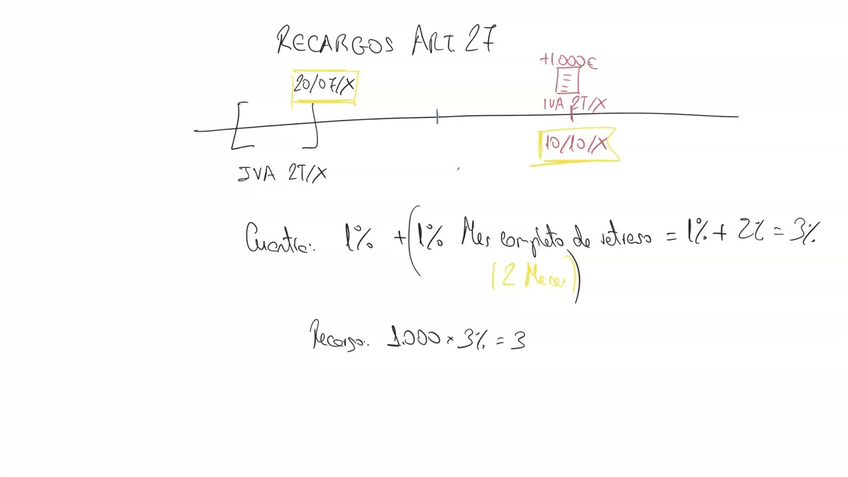 RECARGOS ART. 27
+1.000€
20/07/X
IVA 2T/X
10/10/X
IVA 2T/X
Cuantía: 1% + (1% Mes completo de retraso = 1% + 2% = 3%
(2 Meses)
Recargo: 1.000 × 3% = 3